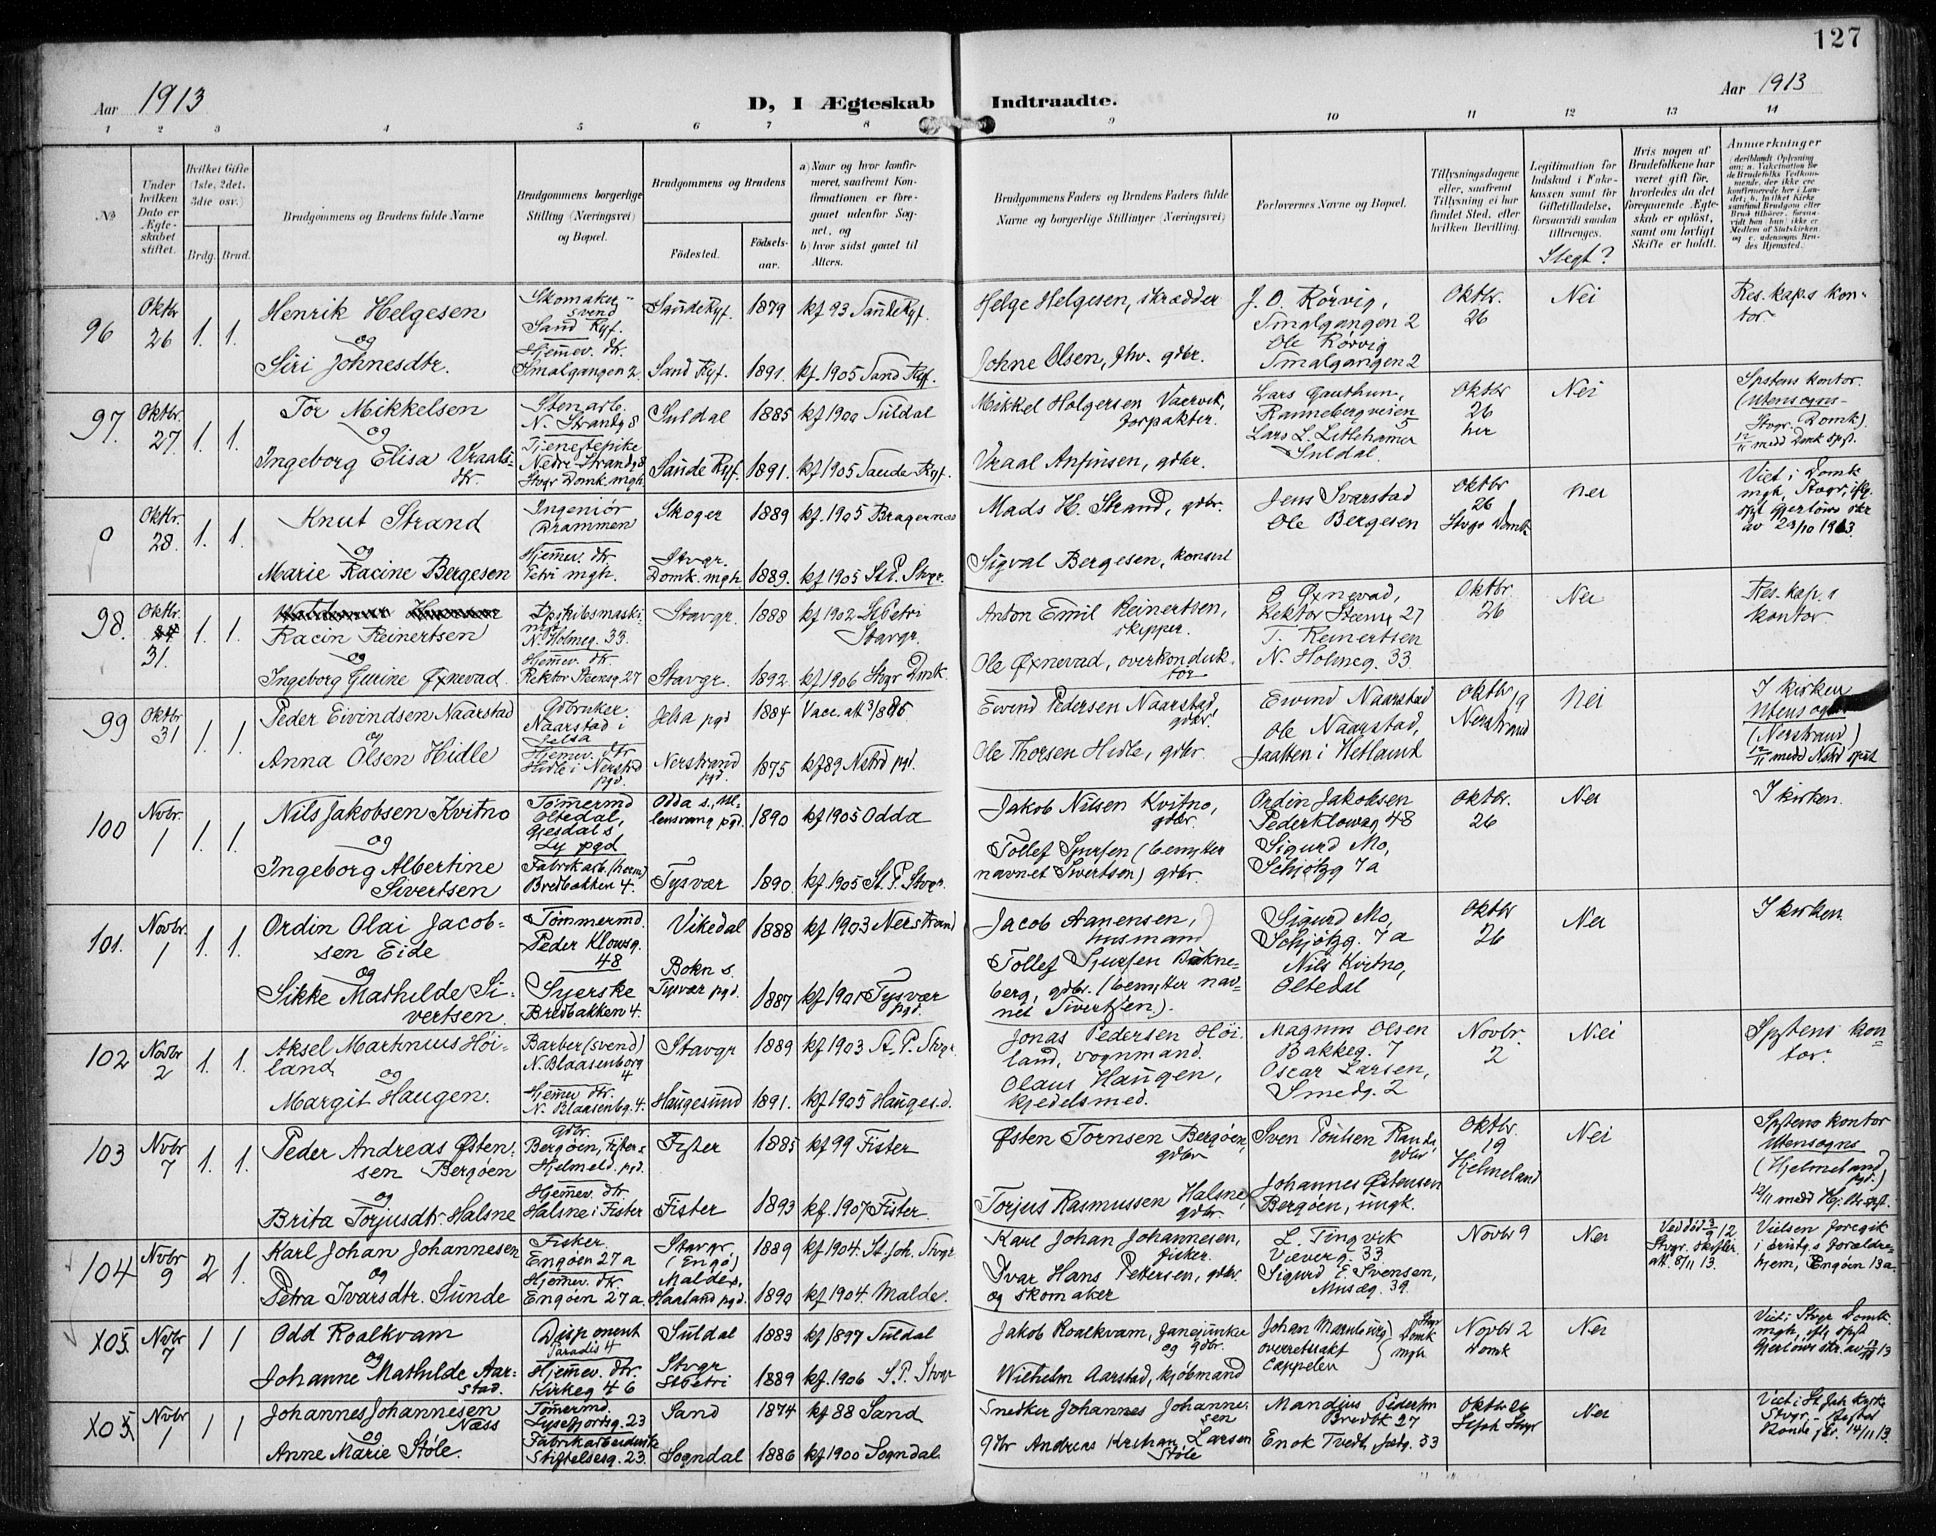 127
Aar 1913
D, I Ægteskab Indtraadte.
Aar 1913
1 2 3 4 5 6 7 8 9 10 11 12 13 14
No
Under hvilken Dato er Ægteskabet stiftet.
Hvilket Gifte (1ste, 2det, 3die osv.)
Brdg. Brud.
Brudgommens og Brudens fulde Navne
Brudgommens borgerlige Stilling (Næringsvei) og Bopæl.
Brudgommens og Brudens
Fødested.
Fødselsaar.
a) Naar og hvor konfirmeret, saafremt Konfirmationen er foregaaet udenfor Sognet, og
b) hvor sidst gaaet til Alters.
Brudgommens Faders og Brudens Faders fulde Navne og borgerlige Stillinger (Næringsvei)
Forlovernes Navne og Bopæl.
Tillysningsdagene eller, saafremt Tillysning ei har fundet Sted, efter hvilken Bevilling.
Legitimation for Indskud i Enkekassen samt for Giftetilladelse, forsaavidt saadan tiltrænges.
Slegt?
Hvis nogen af Brudefolkene har været gift før, hvorledes da det foregaaende Ægteskab er opløst, samt om lovligt Skifte er holdt.
Anmærkninger
96 Oktbr 26 1. 1.
Henrik Helgesen
og
Siri Johnesdtr.
Skomakersvend Sand Ryf.
Hjemev. dtr. Smalgangen 2.
Saude Ryf. 1879 kf 93 Saude Ryf.
Sand Ryf. 1891. kf. 1905 Sand Ryf.
Helge Helgesen, skrædder
Johne Olsen, Jhv. gdbr.
J. O. Rörvig, Smalgangen 2
Ole Rörvig Smalgangen 2
Oktbr. 26
Nei
Res. kap.s kontor
97. Oktbr. 27. 1. 1.
Tor Mikkelsen
og
Ingeborg Elisa Vraalsdtr.
Stenarb. N. Strandg 8
Tjenestepike Nedre Strandg 8 Stvgr Domk. mgh
Suldal 1885 kf 1900 Suldal
Saude Ryf. 1891. kf. 1905 Saude Ryf.
Mikkel Holgersen Vaarvik, forpakter.
Vraal Anfinsen, gdbr.
Lars Gauthun, Rannebergveien 5
Lars L. Litlehamar Suldal.
Oktbr 26 her
Nei
Spstens kontor. (Utensogns- Stvgr. Domk). 12/11 medd Domk spst.
0 Oktbr. 28. 1. 1.
Knut Strand
og
Marie Racine Bergesen
Ingeniör Drammen
Hjemev. dtr Petri mgh.
Skoger 1889 kf. 1905 Bragernæs
Stvgr. Domk. mgh 1889. kf 1905 St. P. Stvgr.
Mads H. Strand, gdbr.
Sigval Bergesen, konsul
Jens Svarstad
Ole Bergesen
Oktbr 26 Stvgr Domk
Nei
Viet i Domk mgh, Stvgr, ifg. spst Gjerlöws skr av 29/10 1913
98. Oktbr. 31. 1. 1.
Racin Reinertsen
og
Ingeborg Gurine Øxnevad.
N. Holmeg. 33.
Hjemev. dtr. Rektor Steensg. 27
Stavgr. 1888 kf 1902 St Petri Stavgr.
Stavgr. 1892. kf 1906 Stvgr Dmk.
Anton Emil Reinertsen, skipper.
Ole Øxnevad, overkonduktör
O. Øxnevad, Rektor Steensg 27
T. Reinertsen N. Holmeg. 33.
Oktbr. 26
Nei
Res. kap.s kontor
99 Oktbr 31 1. 1.
Peder Eivindsen Naarstad
og
Anna Olsen Hidle
Gdbruker, Naarstad i Jelsa
Hjemev. dtr Hidle i Nerstrd pgd.
Jelsa pgd 1884
Nerstrand pgd. 1875 kf 89 Nstrd pgd.
Eivind Pedersen Naarstad, gdbr.
Ole Thorsen Hidle, gdbr.
Eivind Naarstad
Ole Naarstad, Jaatten i Hetland
Oktbr 19 Nerstrand
Nei
I kirken Utensogns (Nerstrand) 12/11 medd Nstrd spst
100 Novbr. 1 1. 1.
Nils Jakobsen Kvitno
og
Ingeborg Albertine Sivertsen
Tömermd Oltedal, Gjesdal s Ly pgd
Fabrikarb. (herm) Bredbakken 4.
Odda s., Ullensvang pgd. 1890 kf 1905 Odda
Tysvær 1890. kf. 1905 St. P. Stvgr.
Jakob Nilsen Kvitno, gdbr.
Tollef Sjursen (benytter navnet Sivertsen) gdbr.
Ordin Jakobsen Pederklowsg 48
Sigurd Mo, Schjötzg 7a
Oktbr. 26
Nei
I kirken.
101. Novbr. 1 1. 1.
Ordin Olai Jacobsen Eide
og
Sikke Mathilde Sivertsen.
Tömmermd. Peder Klowsg. 48
Syerske Bredbakken 4.
Vikedal 1888 kf 1903 Nerstrand
Bokn s. Tysvær pgd. 1887 kf 1901 Tysvær pgd.
Jacob Aanensen, husmand
Tollef Sjursen Bokneberg, gdbr. (benytter navnet Sivertsen).
Sigurd Mo, Schjötzg. 7a
Nils Kvitno, Oltedal
Oktbr 26
Nei
I kirken
102 Novbr 2 1. 1.
Aksel Martinius Höiland
og
Margit Haugen.
Barber (svend) N. Blaasenborg 4
Hjemev dtr. N. Blaasenbg. 4.
Stavgr 1889 kf 1903 St. P. Stvgr.
Haugesund 1891. kf 1905 Hauges.d.
Jonas Pedersen Höiland, vognmand.
Olaus Haugen, kjedelsmed.
Magnus Olsen Bakkeg. 7
Oscar Larsen, Smedg. 2
Novbr. 2
Nei
Spstens kontor.
103 Novbr 7 1. 1.
Peder Andreas Østensen Bergöen
og
Brita Torjusdtr. Halsne
gdbr. Bergöen, Fister s Hjelmeld. pgd.
Hjemev. dtr. Halsne i Fister
Fister 1885 kf 99 Fister
Fister 1893 kf. 1907 Fister.
Østen Tornsen Bergöen, gdbr
Torjus Rasmussen Halsne, gdbr.
Sven Poulsen Rand, gdbr
Johannes Østensen Bergöen, ungk.
Oktbr. 19 Hjelmeland
Nei
Spstens kontor Utensogns (Hjelmeland pgd.) 12/11 medd Hj.lds spst.
104 Novbr 9 2 1.
Karl Johan Johannesen
og
Petra Ivarsdtr. Sunde
Fisker. Engöen 27a
Hjemev. dtr. Engöen 27a
Stavgr (Engö) 1889 kf 1904. St. Joh. Stvgr.
Malde s, Haaland pgd. 1890 kf 1904. Malde.
Karl Johan Johannesen, fisker.
Ivar Hans Pettersen, gdbr. og skomaker
L. Tingvik Væverg. 33
Sigurd E. Svensen, Musæg. 39.
Novbr 9
Nei
Ved död 3/9 12 Stvgr. skifter att. 8/11 13.
Vielsen foregik i brudg.s forældrehjem, Engöen 13a.
X05. Nvbr 7 1 1
Odd Roalkvam
og
Johanne Mathilde Aarstad.
Disponent Paradis 4
Hjemev. dtr. Kirkeg 46
Suldal 1883 kf 1897 Suldal
Stvgr St Petri 1889 kf. 1906 S. P. Stvgr
Jakob Roalkvam, og gdbr.
Wilhelm Aarstad, kjöbmand
overretssakf Cappelen
Stvgr Domk mgh
Novbr 2 Domk
Nei
Viet i Stvgr Domk mgh, ifg spst Gjerlöws skr. av 13
X05 Nvbr 1 1 1
Johannes Johannesen Næss
og
Anne Marie Støle.
Tömermd. Lysefjordsg. 23
Fabrikarbeiderske Stiftelsesg. 23.
Sand 1874 kf 88 Sand
Sogndal 1886 kf 1900 Sogndal.
Snedker Johannes Johannesen
gdbr Andreas Kristian Larsen Støle
Mandius Pedersen Bredbk 27
Enok Tvedt, 33
Oktbr 26
Nei
Viet i St. Joh kirke Stvgr. 14/11 13.